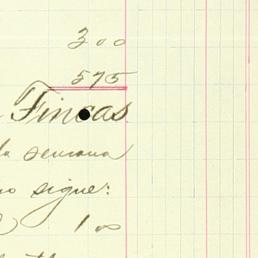 300
575
Fincas
la semana
sigue:
1 00